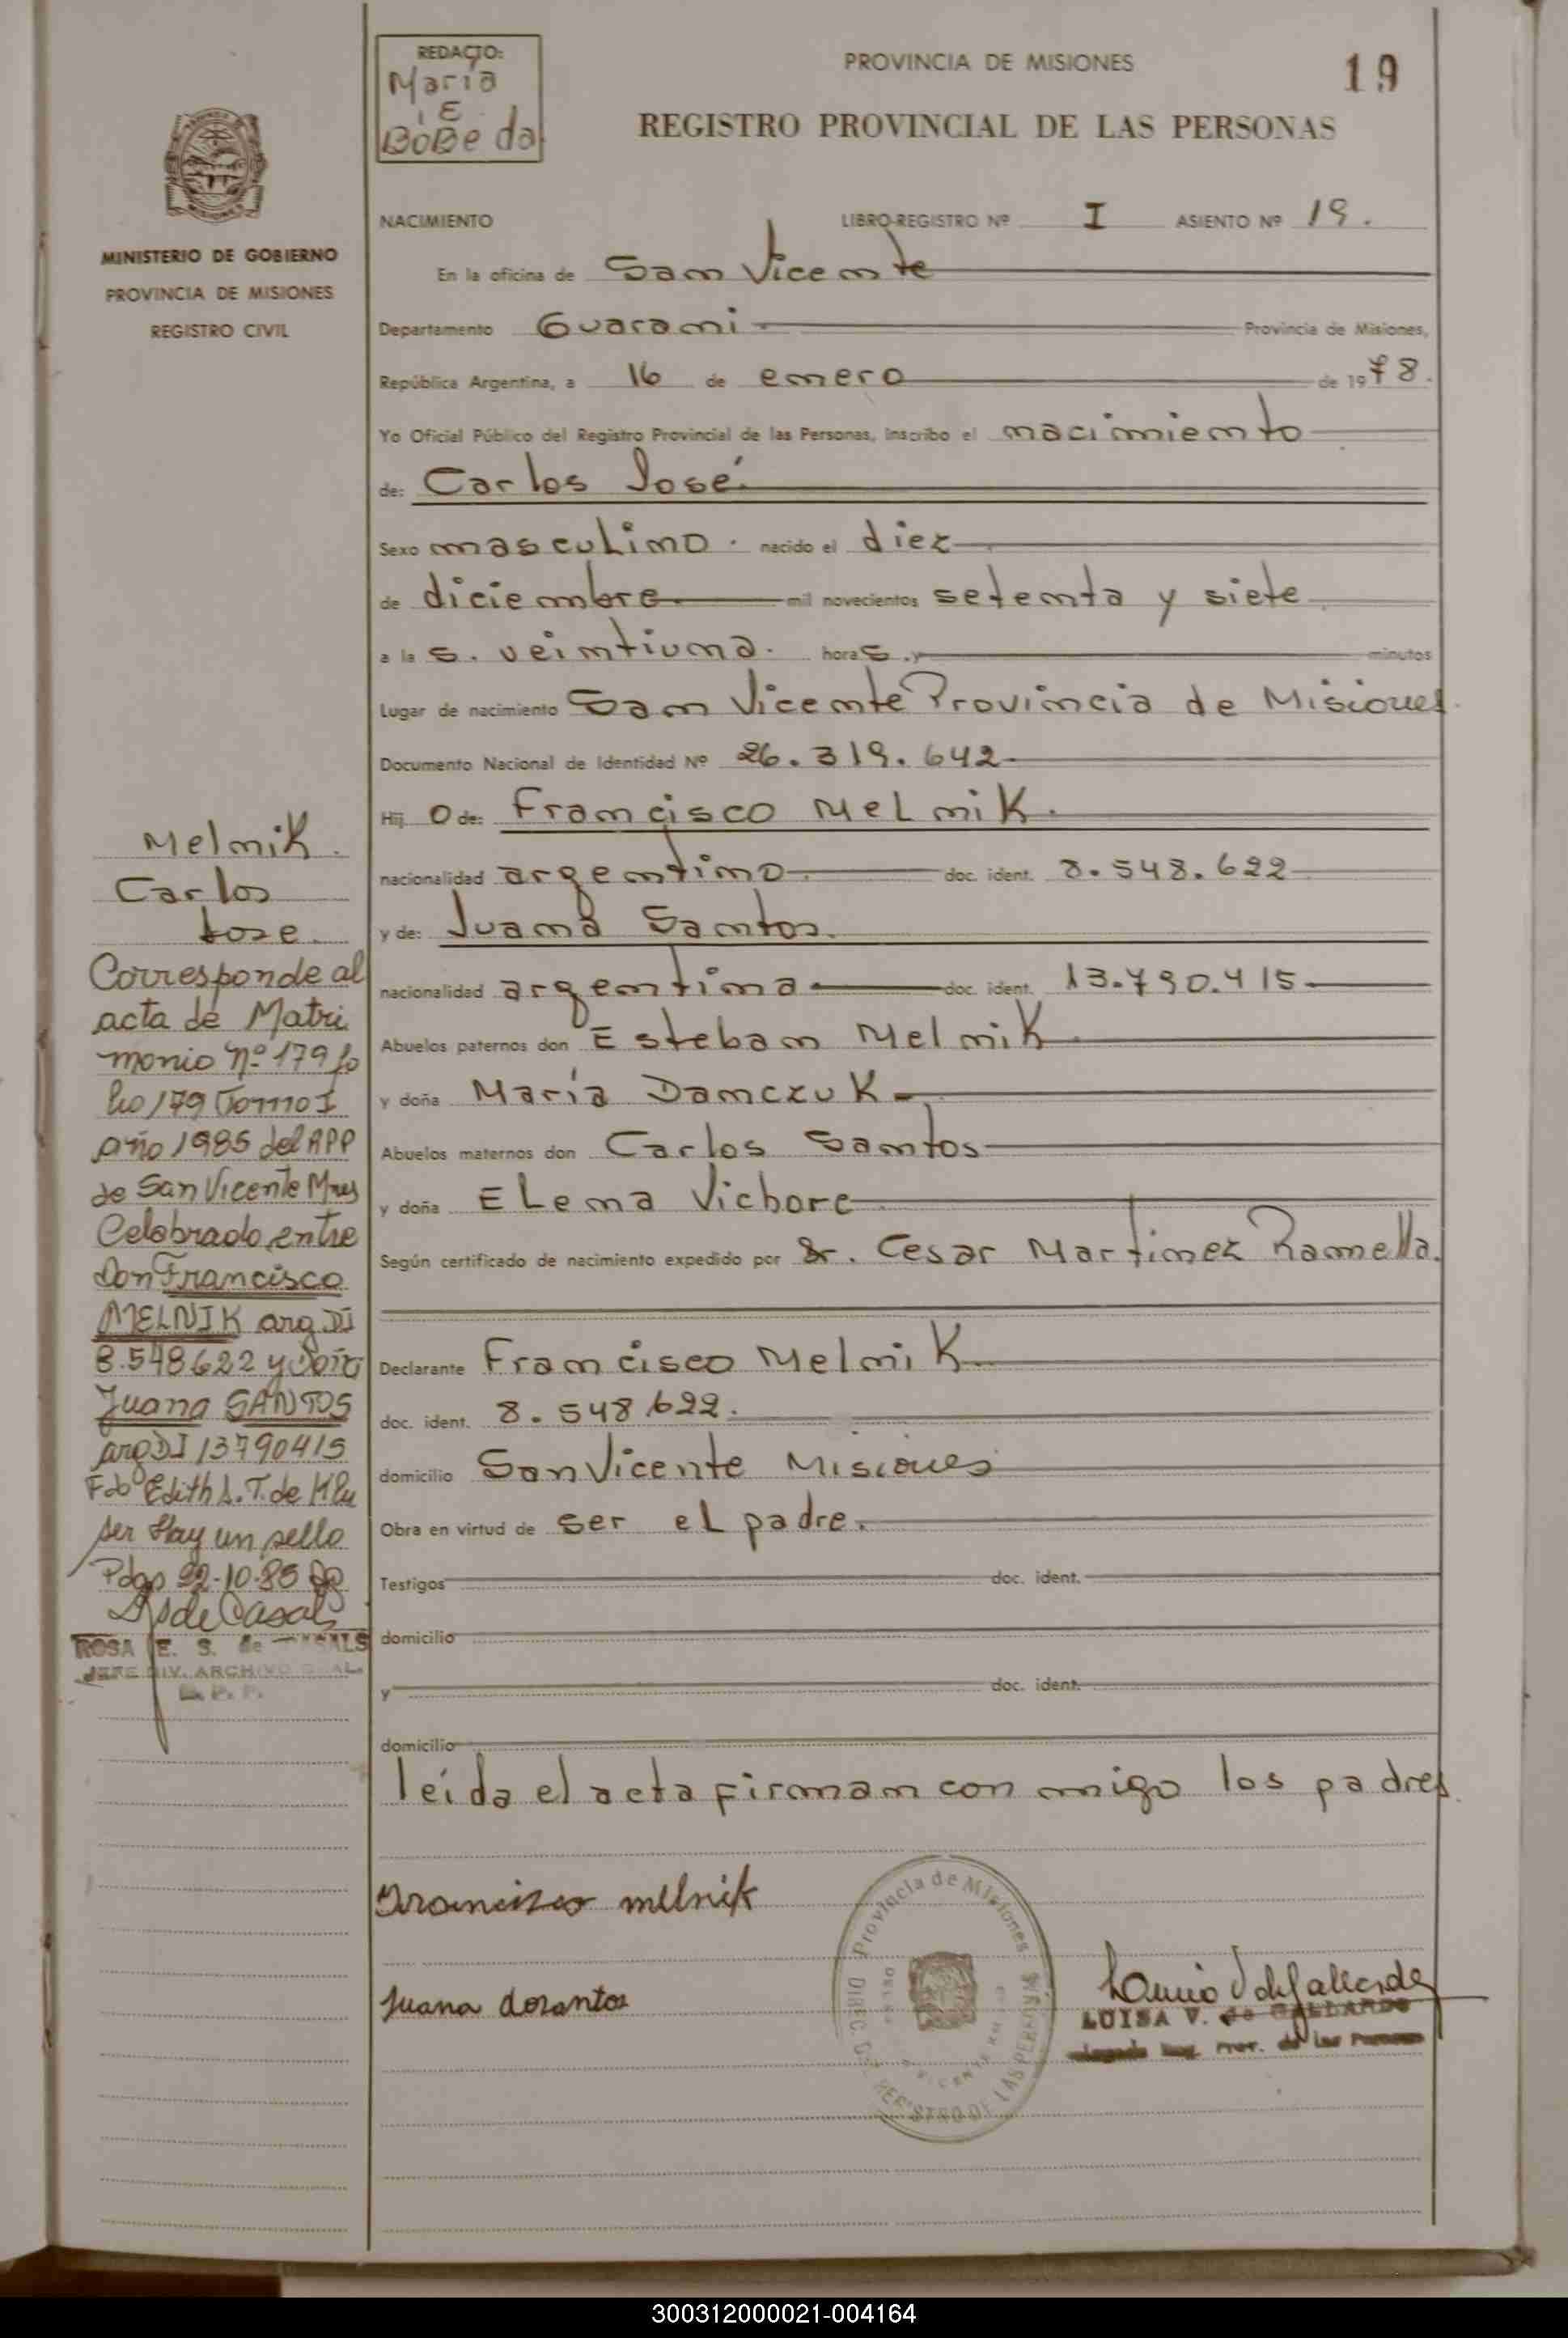 REDACTO:
Maria
E
BoBeda
PROVINCIA DE MISIONES
19
REGISTRO PROVINCIAL DE LAS PERSONAS
MINISTERIO DE GOBIERNO
PROVINCIA DE MISIONES
REGISTRO CIVIL
NACIMIENTO LIBRO-REGISTRO Nº I ASIENTO Nº 19.
En la oficina de San Vicente
Departamento Guarani Provincia de Misiones,
República Argentina, a 16 de enero de 1978.
Yo Oficial Público del Registro Provincial de las Personas, inscribo el nacimiento
de: Carlos José.
Sexo masculino. nacido el diez
de diciembre. mil novecientos setenta y siete
a las. veintiuna. horas. y minutos
Lugar de nacimiento San Vicente Provincia de Misiones
Documento Nacional de Identidad Nº 26.319.642
Hijo de: Francisco MeLniK.
nacionalidad argentino. doc. ident. 8.548.622
y de: Juana Santos.
nacionalidad argentina doc. ident. 13.790.415
Abuelos paternos don Esteban MelniK
y doña María DanczuK
Abuelos maternos don Carlos Santos
y doña ELena Vichore
Según certificado de nacimiento expedido por Dr. Cesar Martinez Ramella.
Declarante Francisco MelniK
doc. ident. 8.548.622.
domicilio San Vicente Misiones
Obra en virtud de ser eL padre.
Testigos doc. ident.
domicilio
y doc. ident.
domicilio
leída el acta firman con migo los padres
Melnik.
Carlos
Jose.
Corresponde al
acta de Matri
monio nº 179 fo
lio 179 Tomo I
año 1985 del RPP
de San Vicente Mnes
Celebrado entre
Don Francisco
MELNIK arg. DI
8.548622 y Doña
Juana SANTOS
arg DI 13790415
Fdo Edith L. T. de Klu
ser Hay un sello
Pdas 22-10-85
de Casals
ROSA E. S. de CASALS
JEFE DIV. ARCHIVO GRAL.
R. P. P.
Francisco melnik
Juana dosantos
Provincia de Misiones
DIREC. DEL REGISTRO DE LAS PERSONAS
LUISA V. de GALLARDO
Reg. Prov. de las Personas
300312000021-004164